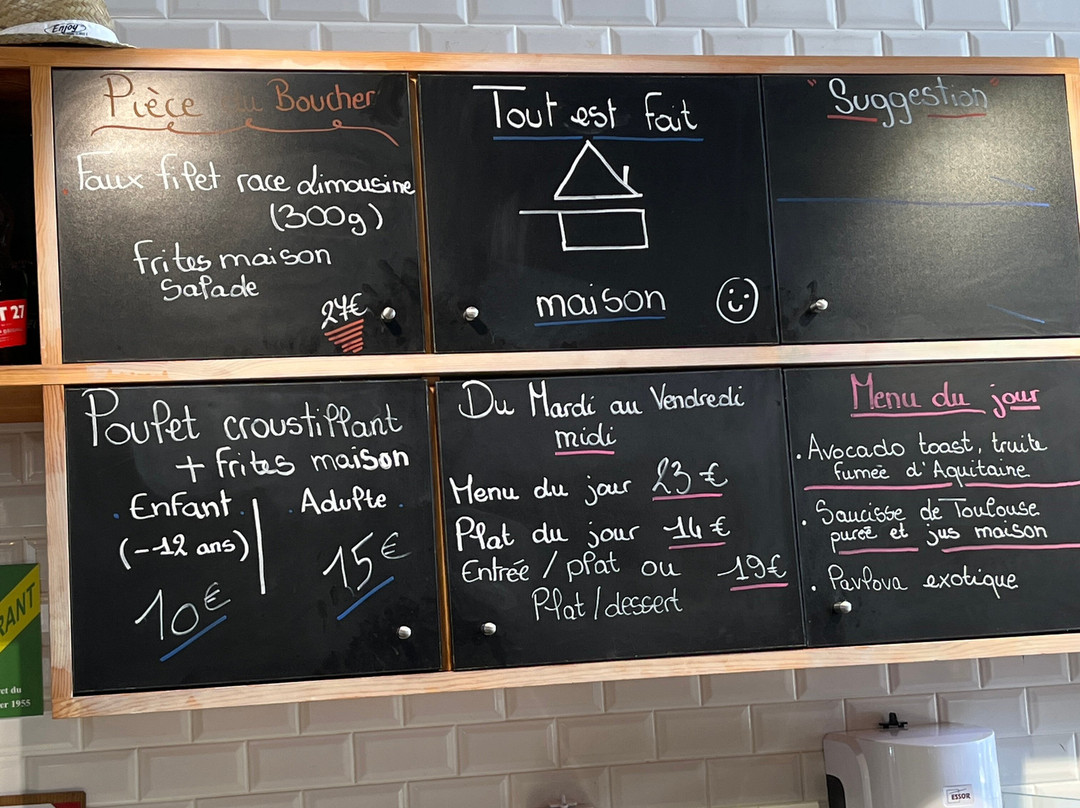 Enjoy
Pièce du Boucher
Faux filet race Limousine
(300g)
frites maison
Salade
27€
Tout est fait
maison
"Suggestion"
T 27
Poulet croustillant
+ frites maison
. Enfant .
(-12 ans)
10€
Adulte .
15€
Du Mardi au Vendredi
midi
Menu du jour 23 €
Plat du jour 14 €
Entrée / plat ou 19€
Plat / dessert
Menu du jour
. Avocado toast, truite
fumée d'Aquitaine
. Saucisse de Toulouse
purée et jus maison
. Pavlova exotique
RANT
et du
er 1955
ESSOR